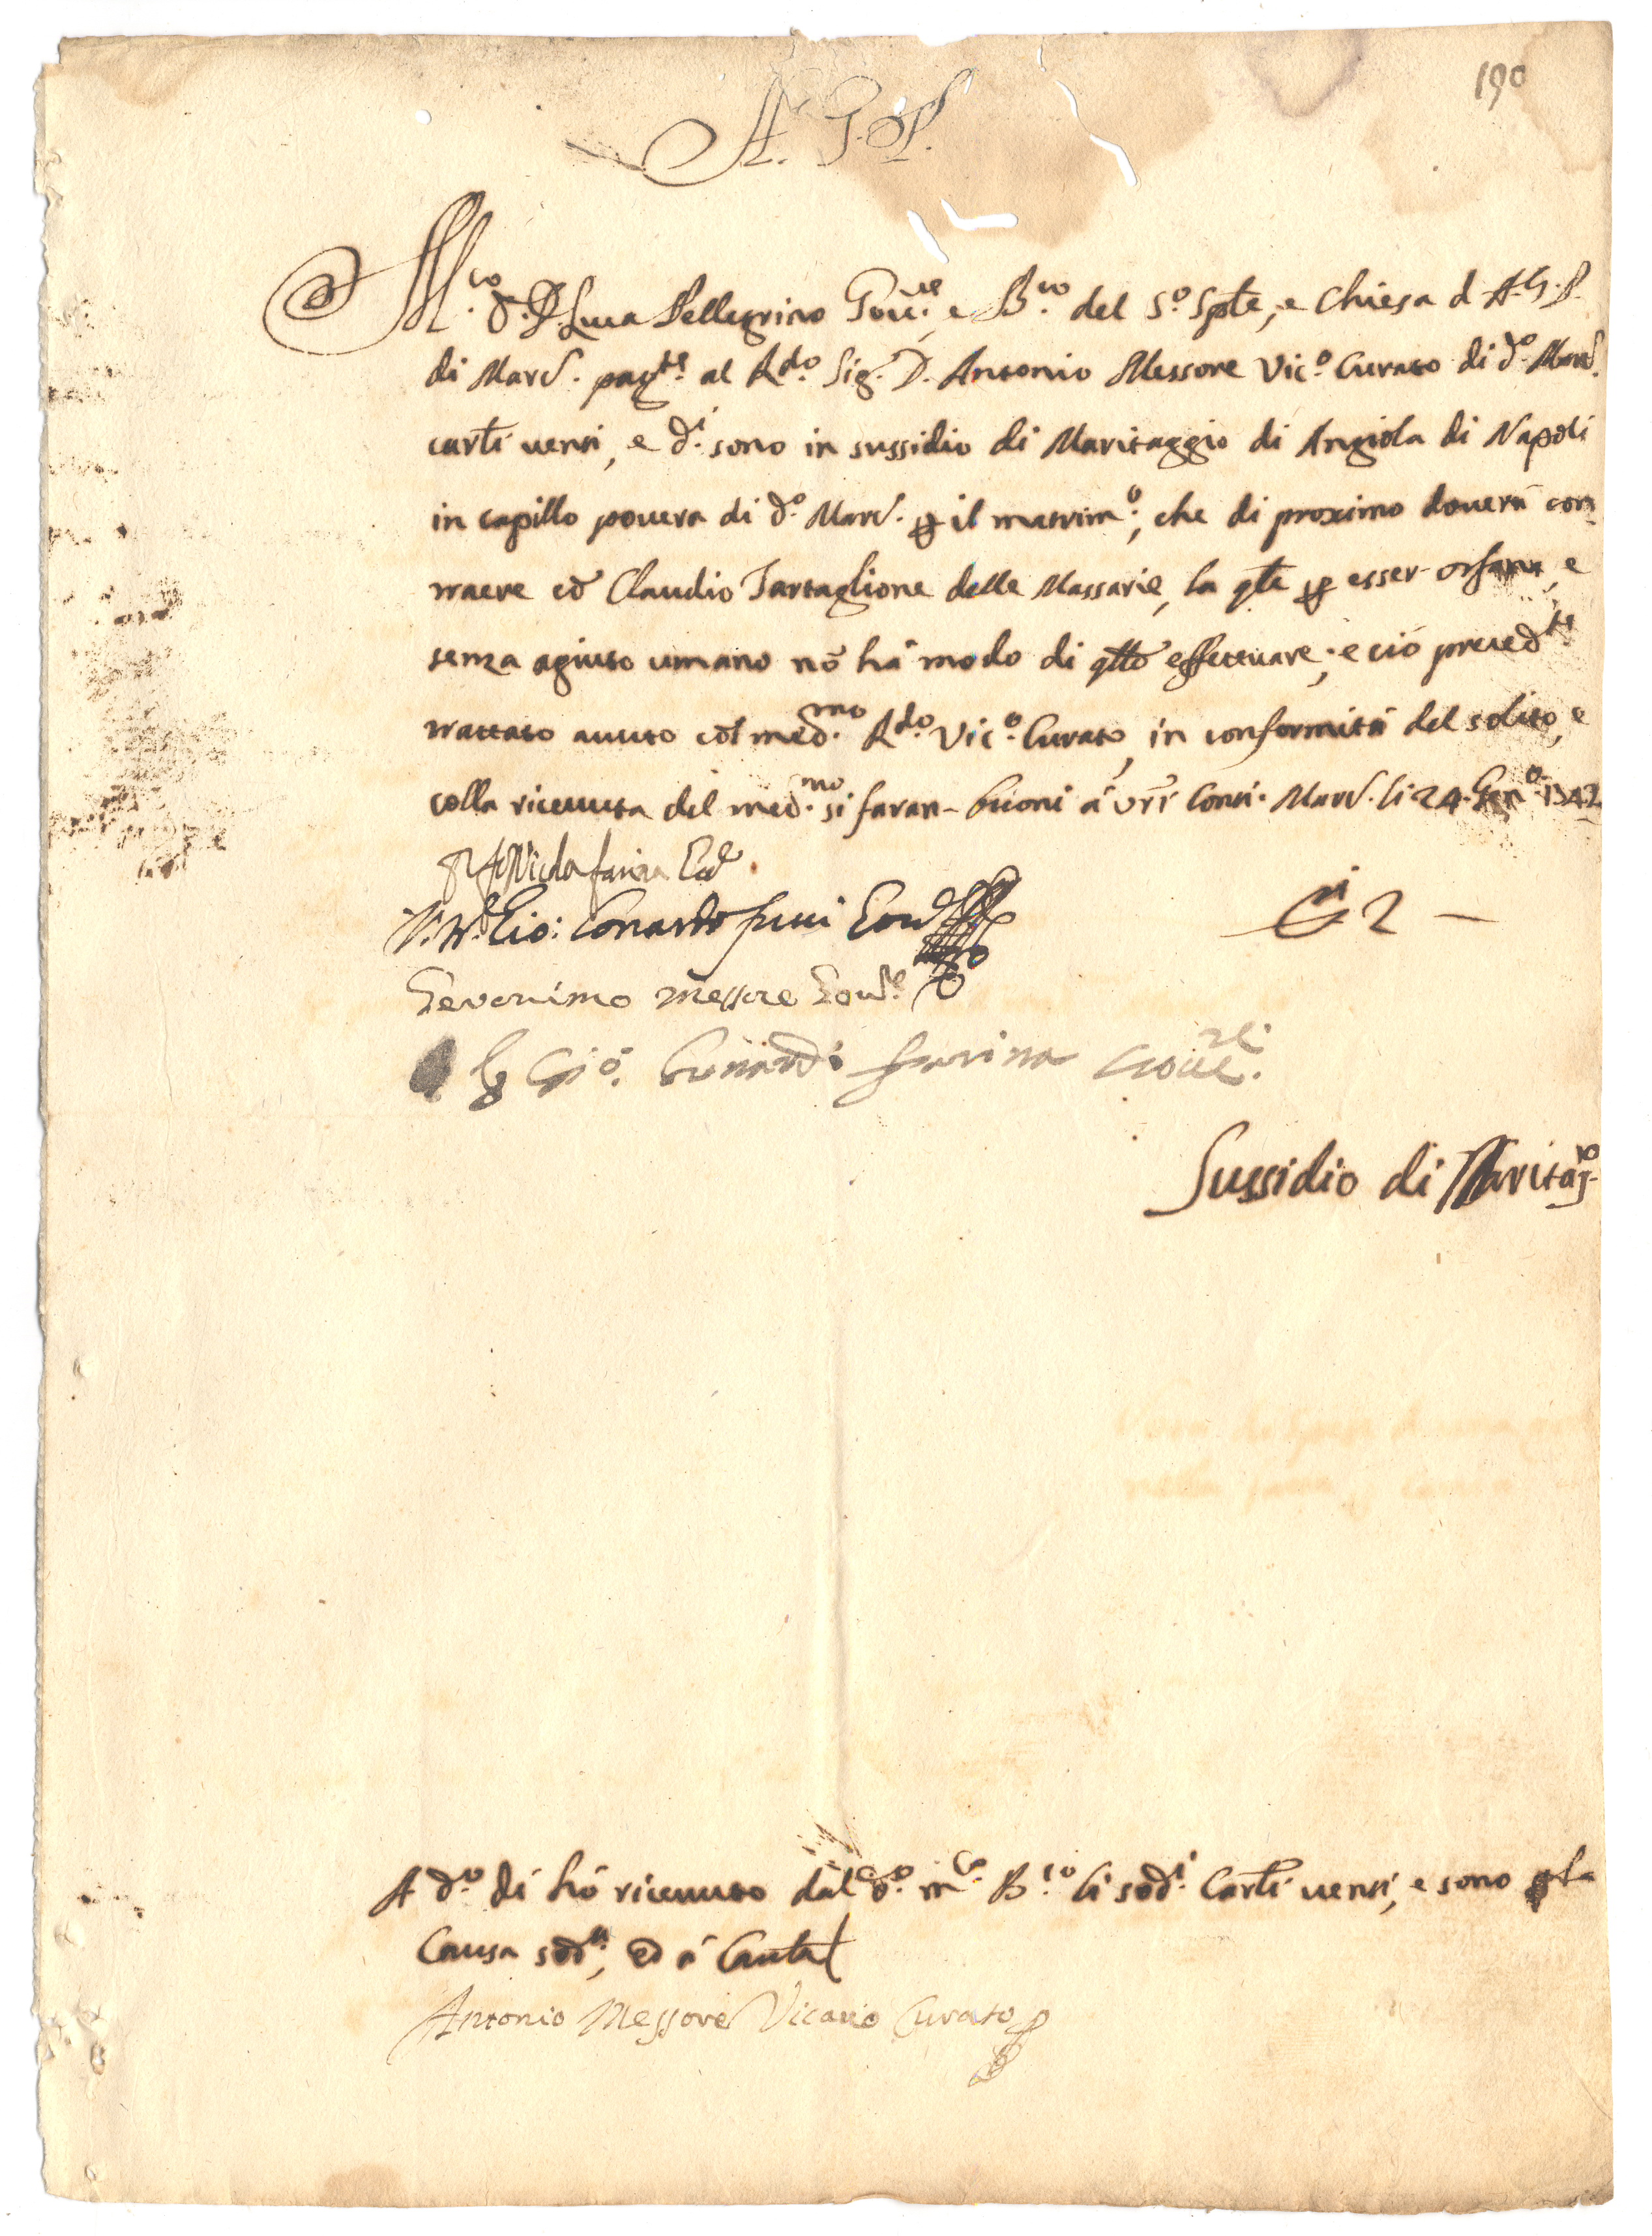 190
A. G. P.
M.co S.r D. Luca Pellegrino Gou.re, e B.co del S.o Sple, e Chiesa d A. G. P.
di Marc. pag.te al R.do Sig. D. Antonio Messore Vic.o Curato di d.o Marc.
carti venti, e d.i sono in sussidio di Maritaggio di Angiola di Napoli
in capillo povera di d.o Marc. p il matrim.o, che di proximo doverà con
traere cō Claudio Tartaglione delle Massarie, la qle p esser orfana, e
senza agiuto umano nō hà modo di qllo effettuare; e ciò preced.te
trattato auuto col med.mo R.do Vic.o Curato, in conformità del solito, e
colla riceuuta del med.mo si faran buoni à vrī Conti. Marc. li 24. Gen.o 1742
Nicola farina
Gio:
Geronimo Messore Gou.re
Gio. farina Gou.re
2 —
Sussidio di Maritag.o
A d.o dì hò riceuuto dal d.o m.co B.co li sod.i Carti venti, e sono p la
Causa sod.a, ed à Cautel
Antonio Messore Vicario Curato